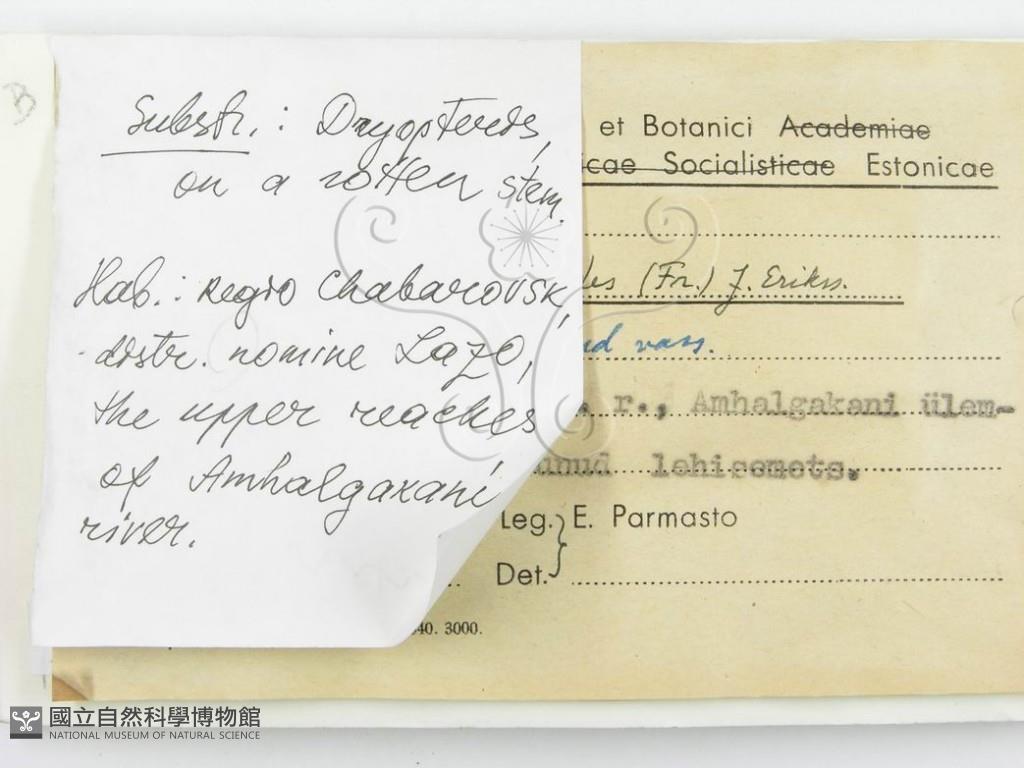 B
Substr.: Dryopteris,
on a rotten stem.
Hab.: regio Chabarovsk,
distr. nomine Lazo,
the upper reaches
of Amhalgakani
river.
et Botanici Academiae
icae Socialisticae Estonicae
(Fr.) J. Erikss.
vars.
r., Amhalgakani ülem-
dnud lehisemets.
Leg. E. Parmasto
Det.
640. 3000.
國立自然科學博物館
NATIONAL MUSEUM OF NATURAL SCIENCE